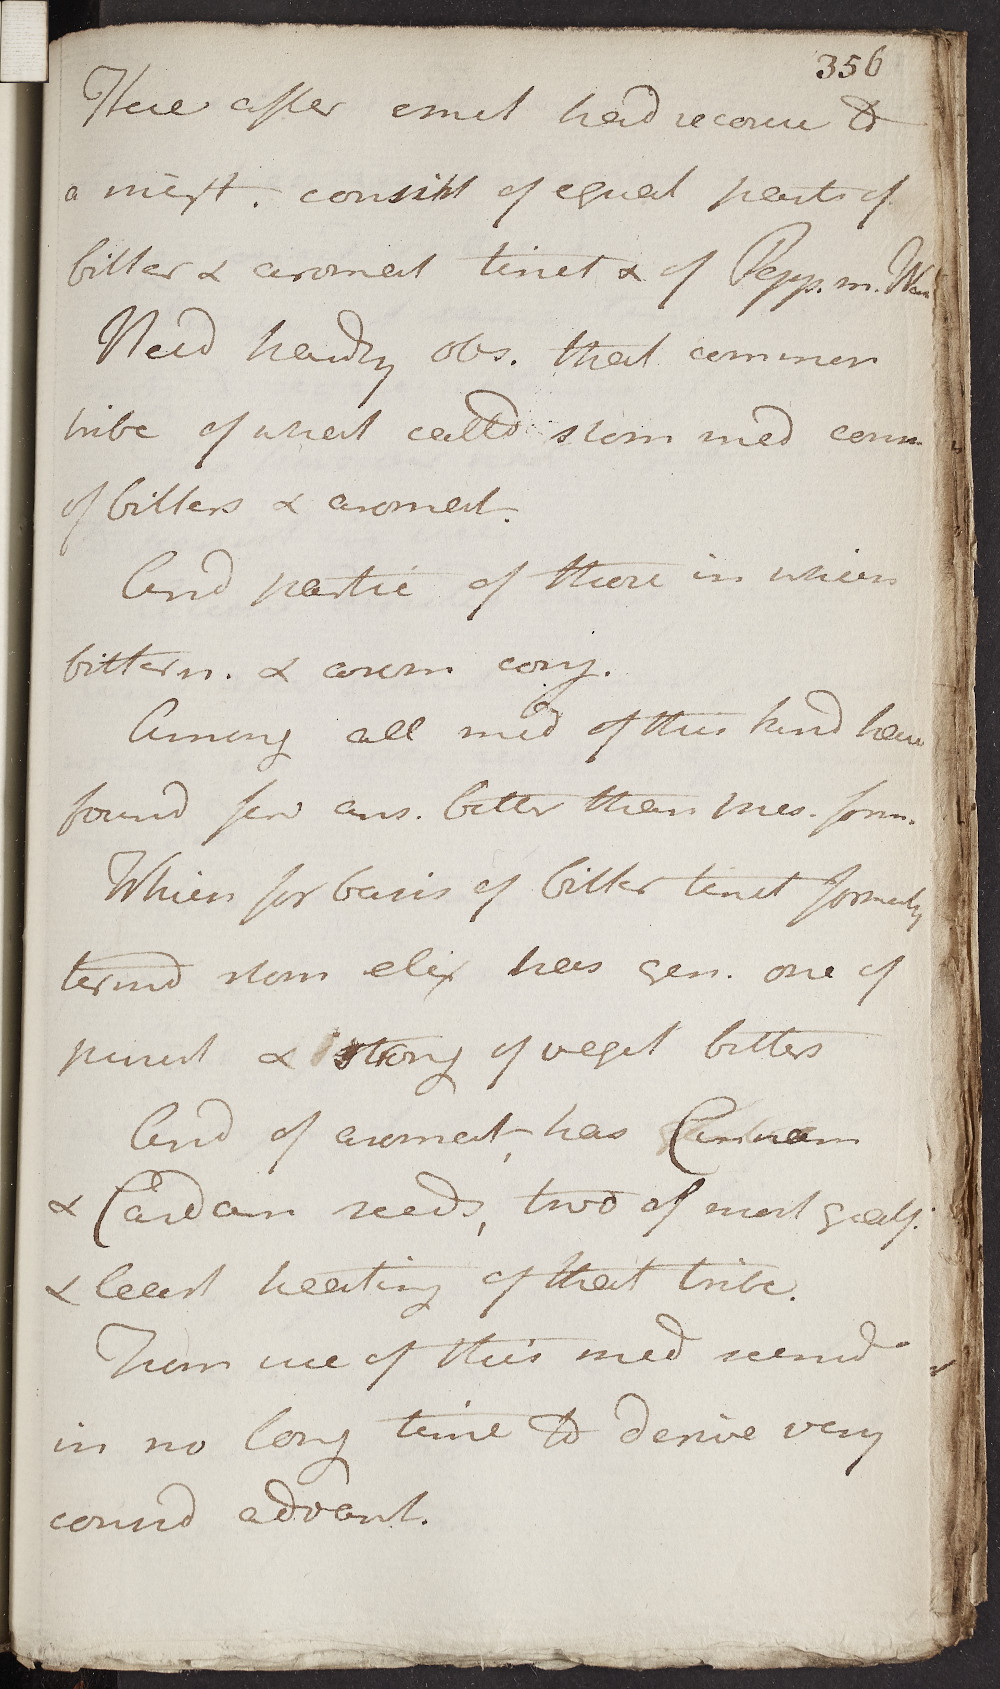 356
Here after emet had recourse to
a mixt. consist of equal parts of
bitter & aromat tinct & of Pepp. m. Wat
Need hardly obs. that common
tribe of what calld stom med cons
of bitters & aromat.
And partic of those in which
bittern. & arom conj.
Among all med of this kind have
found few ans. better than pres. form.
Which for basis of bitter tinct formerly
termd stom elix has gen. one of
purest & strong of veget bitters
And of aromat, has Cinnam
& Cardam seeds, two of most gratf.
& least heating of that tribe.
From use of this med seemd
in no long time to derive very
consid advant.